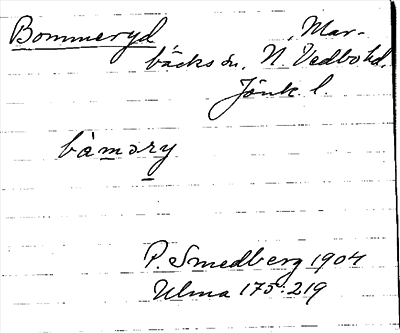 Bommeryd, Mar-
bäcks sn, N. Vedbo hd.
Jönk. l.
bàməry
P. Smedberg 1904
Ulma 175:219